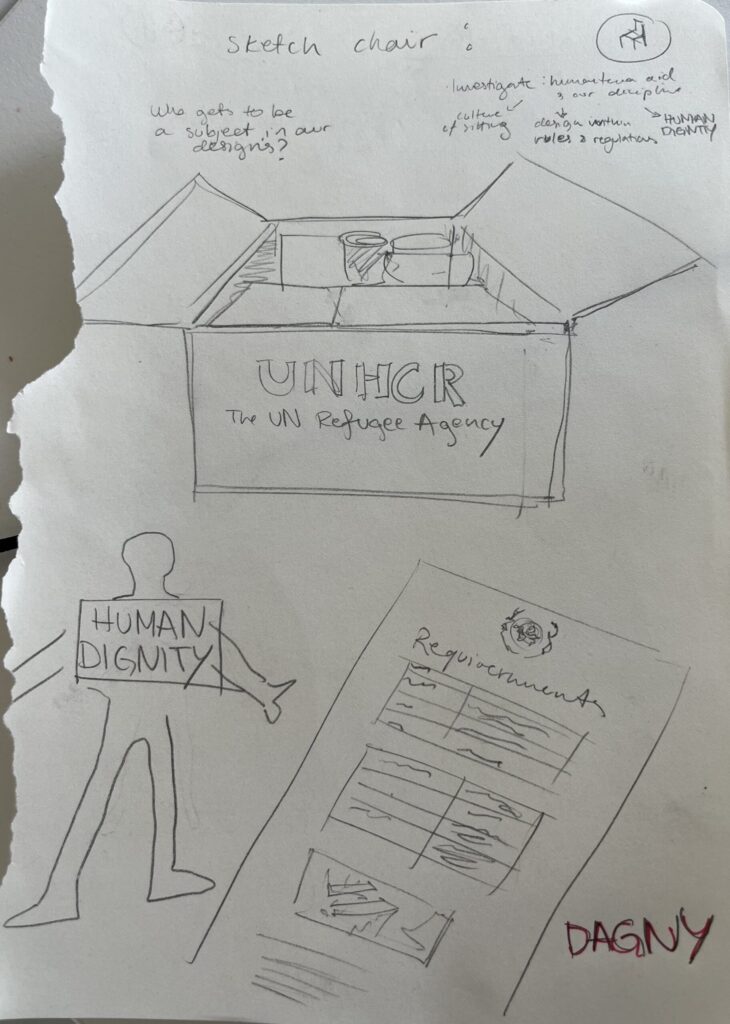 Sketch chair :
Investigate : humanterea aid
& our decipline
culture
of sitting
design within
rules & regulations
HUMAN
DIGNITY
Who gets to be
a subject in our
designs?
UNHCR
The UN Refugee Agency
HUMAN
DIGNITY
Requiernments
DAGNY